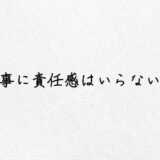 事に責任感はいらない